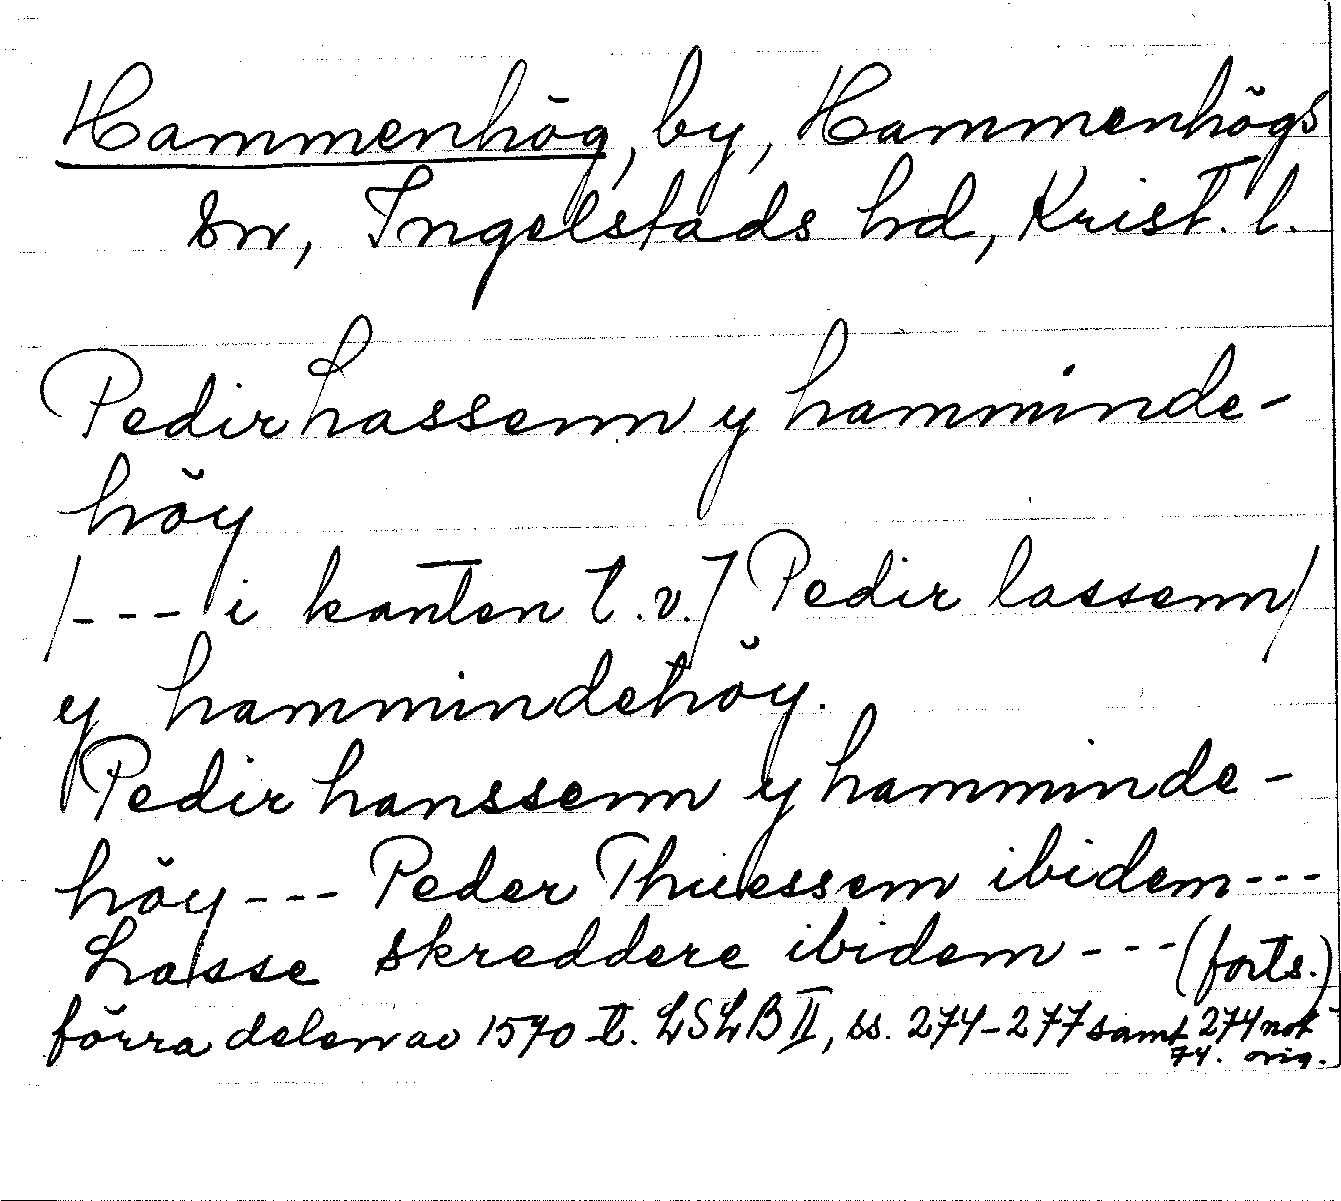 Hammenhög, by, Hammenhögs
sn, Ingelstads hd, Krist. l.
Pedir Lassenn y hamminde-
höy
/--- i kanten t.v.7 Pedir lassenn/
y hammindehöy.
Pedir hanssenn y hamminde-
höy --- Peder Thuessem ibidem ---
Lasse skreddere ibidem --- (forts.)
förra delen av 1570-t. LSLB II, ss. 274-277 samt 274 not
74. orig.